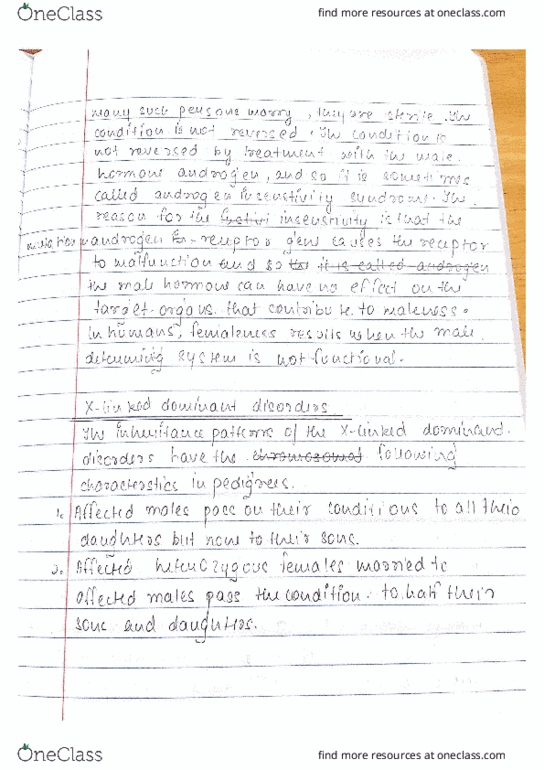 OneClass
find more resources at oneclass.com
many such persons marry, they are sterile. The
condition is not reversed. The condition is
not reversed by treatment with the male
hormone androgen, and so it is sometimes
called androgen insensitivity syndrome. The
reason for the insensitivity is that the
mutation in androgen receptor gene causes the receptor
to malfunction and so it is called androgen
the male hormone can have no effect on the
target organs that contribute to maleness.
in humans, femaleness results when the male
determining system is not functional.
X-linked dominant disorders
The inheritance patterns of the X-linked dominant
disorders have the chromosomal following
characteristics in pedigrees.
1. Affected males pass on their conditions to all their
daughters but none to their sons.
2. Affected heterozygous females married to
affected males pass the condition to half their
sons and daughters.
OneClass
find more resources at oneclass.com